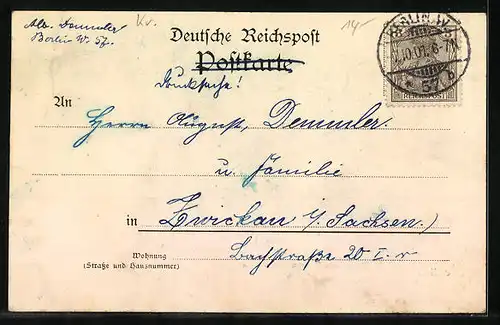 Alb. Demmler
Berlin W. 57.
Kv.
14.-
Deutsche Reichspost
Postkarte
Drucksache!
BERLIN W.
.10.01. 6-7N.
* 57 b
REICHSPOST
An
Herrn August Demmler.
u. Familie
in Zwickau i/ Sachsen.)
Wohnung
(Straße und Hausnummer)
Bachstraße 20 I. r